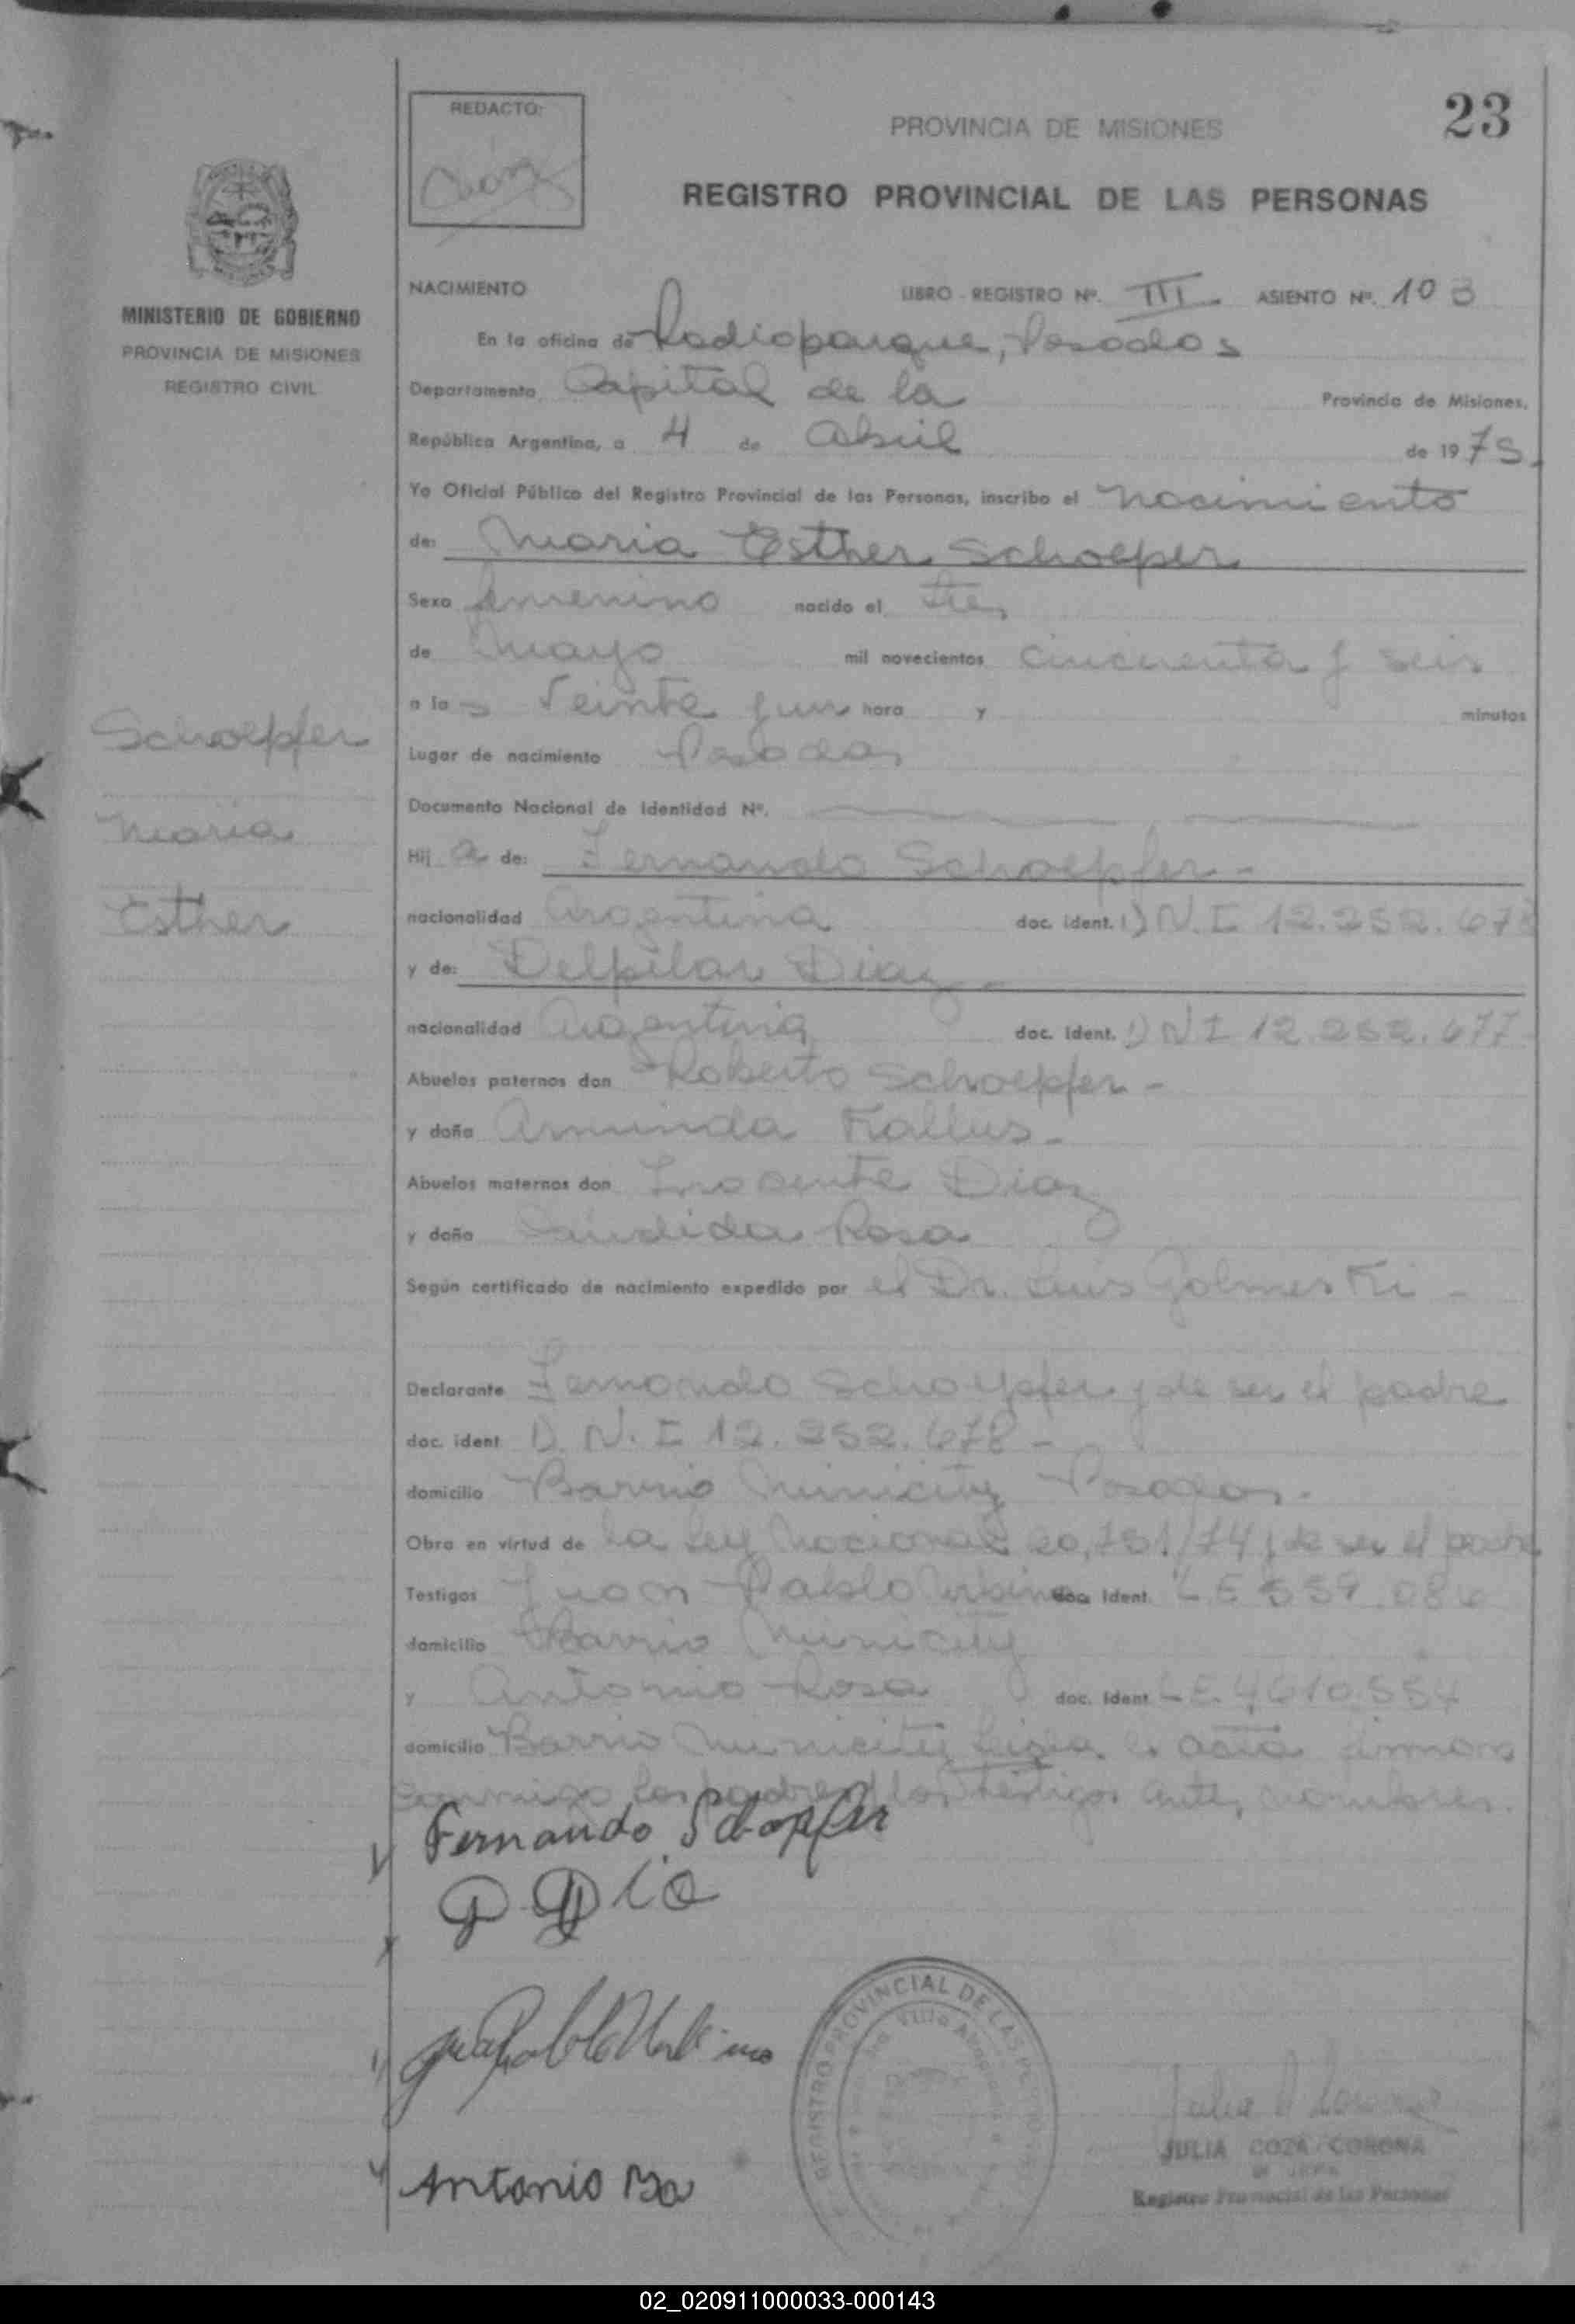 23
REDACTO:
PROVINCIA DE MISIONES
REGISTRO PROVINCIAL DE LAS PERSONAS
MINISTERIO DE GOBIERNO
PROVINCIA DE MISIONES
REGISTRO CIVIL
NACIMIENTO LIBRO - REGISTRO Nº. III ASIENTO Nº. 103
En la oficina de Radioparque, Posadas
Departamento Capital de la Provincia de Misiones.
República Argentina, a 4 de Abril de 1975.
Yo Oficial Público del Registro Provincial de las Personas, inscribo el nacimiento
de: Maria Esther Schoepfer
Sexo femenino nacido el tres
de Mayo mil novecientos cincuenta y seis
a las Veinte y un hora y minutos
Schoepfer
Lugar de nacimiento Posadas
Documento Nacional de Identidad Nº.
Maria
Hij a de: Fernando Schoepfer -
Esther
nacionalidad Argentina doc. ident. D.N.I 12.252.678
y de: Delpilar Diaz -
nacionalidad Argentina doc. ident. DNI 12.252.677
Abuelos paternos don Roberto Schoepfer -
y doña Arminda Kallus -
Abuelos maternos don Inocente Diaz
y doña Candida Rosa
Según certificado de nacimiento expedido por el Dr. Luis -
Declarante Fernando Schoepfer y de ser el padre
doc. ident D.N.I 12.252.678 -
domicilio Barrio Municity Posadas.
Obra en virtud de la Ley Nacional 20.751/74 y de ser el padre
Testigos Juan Pablo doc. Ident. LE 559.086
domicilio Barrio Municity
y Antonio Rosa doc. Ident. LE. 4610.554
domicilio Barrio Municity Leída el acta firman
conmigo los padres y los testigos antes nombrados.
Fernando Schopfer
P. Dia
Antonio
REGISTRO PROVINCIAL DE LAS
Villa
JULIA COZA CORONA
Registro Provincial de las Personas
02_020911000033-000143